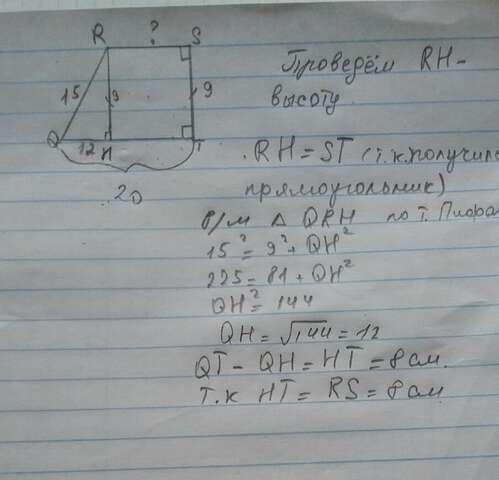 R ? S
15 9 9
Q 12 H T
20
Проведём RH-
высоту
RH = ST (т.к. получился
прямоугольник)
р/м △ QRH по т. Пифаго
15² = 9² + QH²
225 = 81 + QH²
QH² = 144
QH = √144 = 12
QT - QH = HT = 8 см.
Т.к HT = RS = 8 см